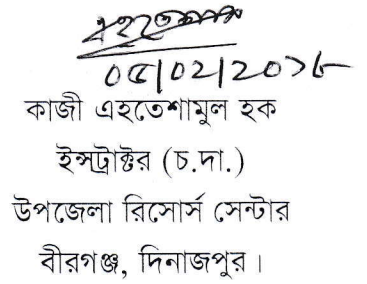 ০৫/০২/২০১৮
কাজী এহতেশামুল হক
ইন্সট্রাক্টর (চ.দা.)
উপজেলা রিসোর্স সেন্টার
বীরগঞ্জ, দিনাজপুর।